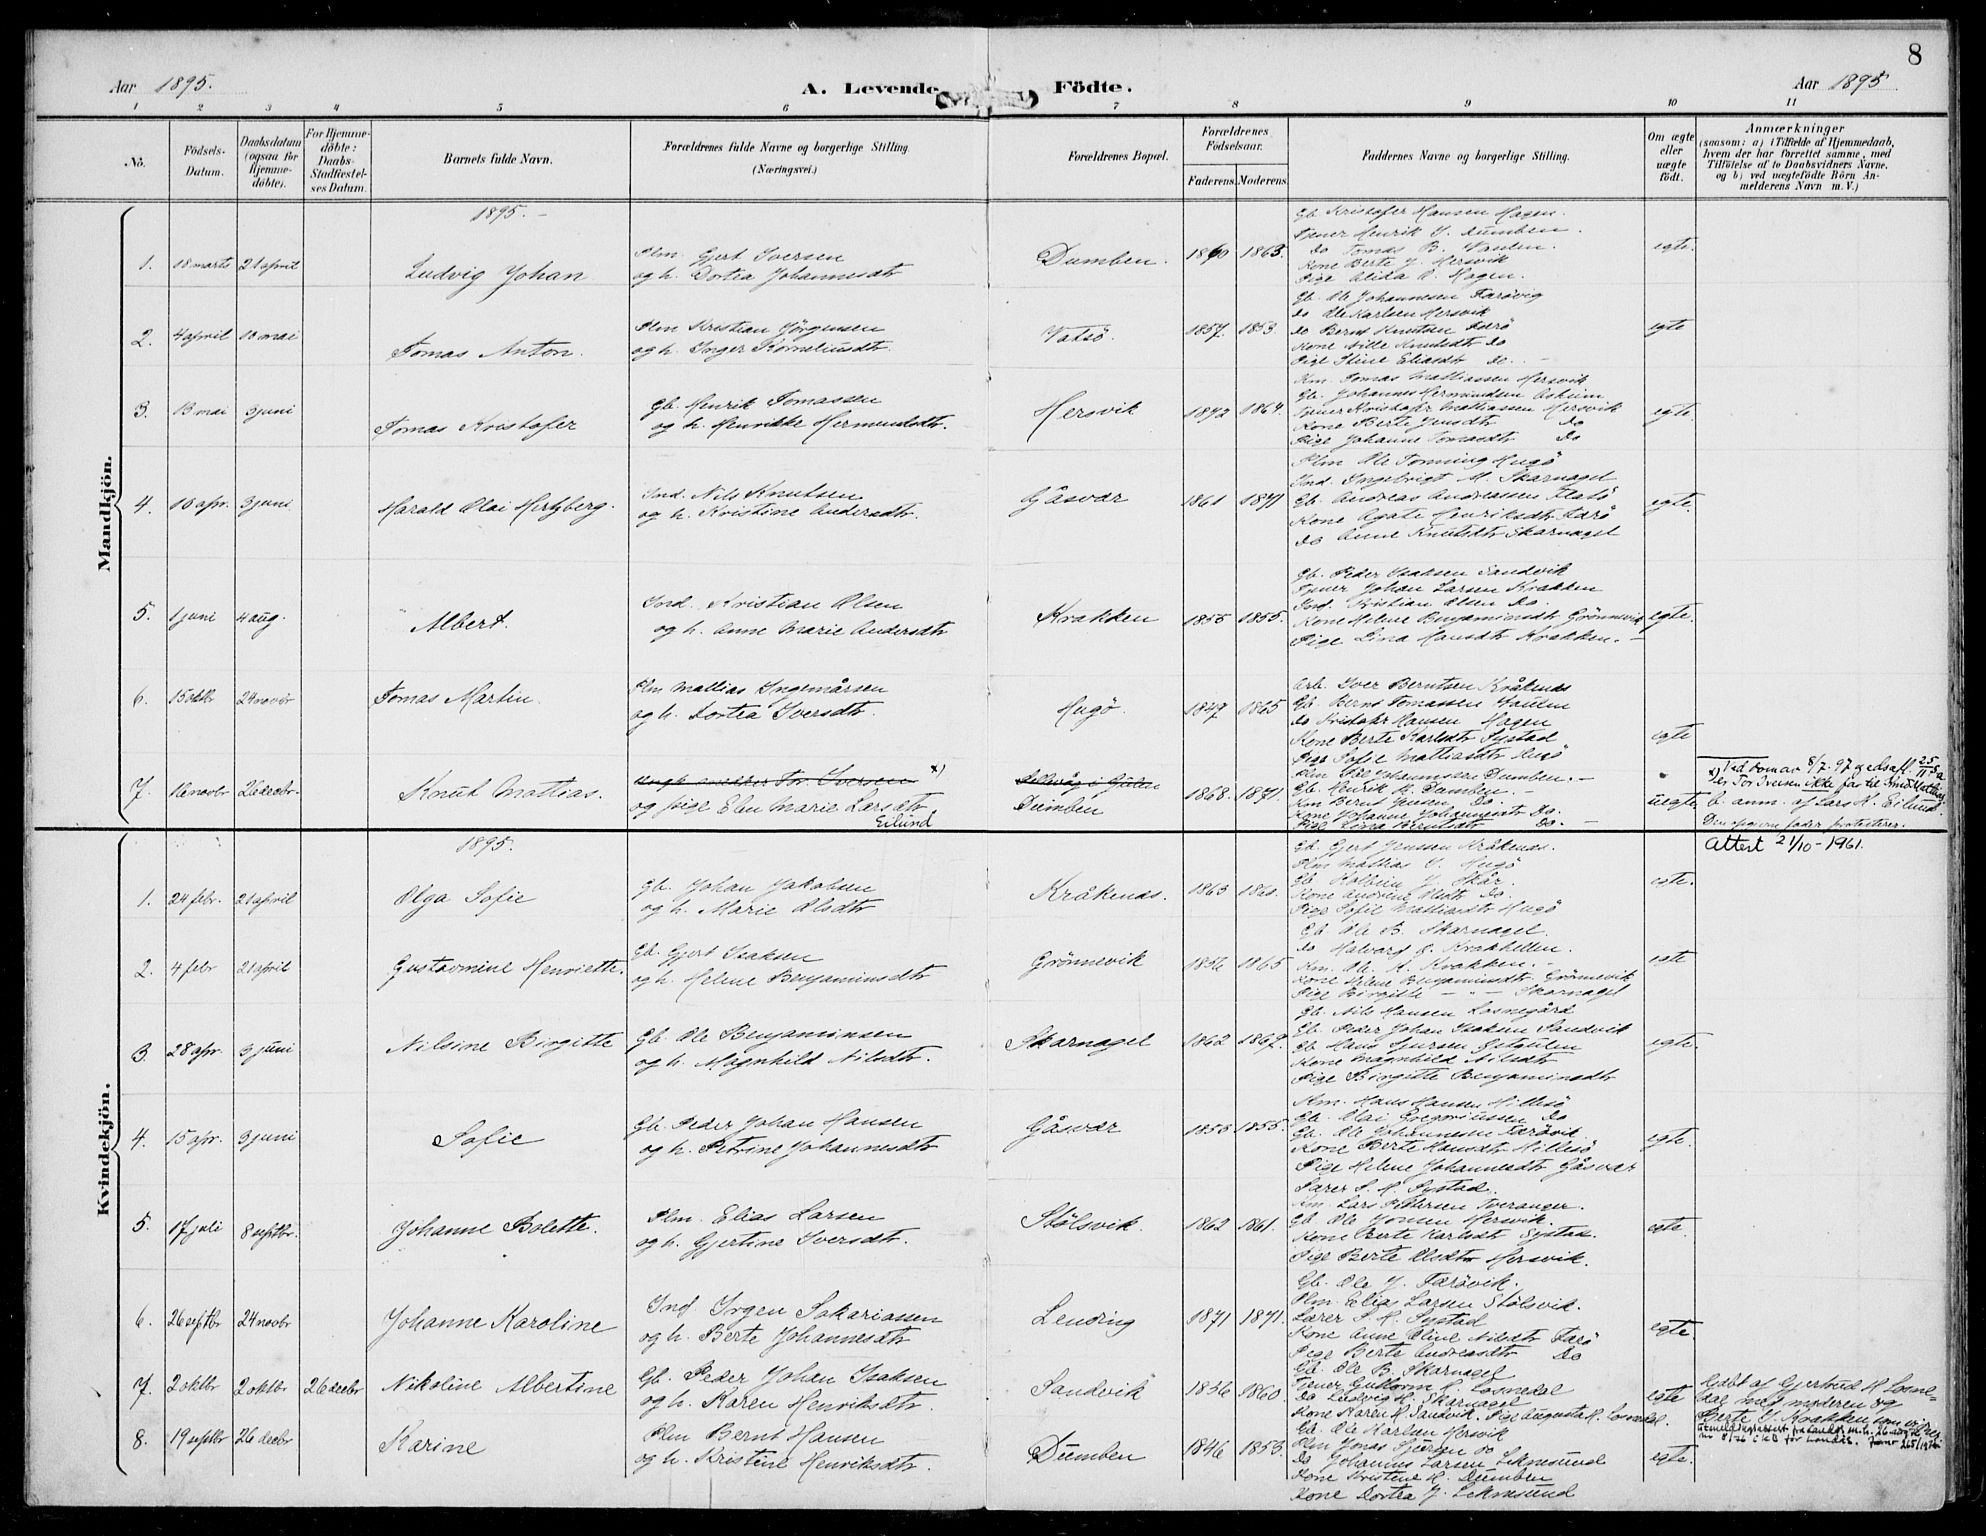 8
Aar 1895.
A. Levende Födte.
Aar 1895
1 2 3 4 5 6 7 8 9 10 11
Nö.
Födsels-Datum.
Daabsdatum (ogsaa for Hjemme-döbte).
For Hjemme-döbte: Daabs-Stadfæstel-ses Datum.
Barnets fulde Navn.
Forældrenes fulde Navne og borgerlige Stilling (Næringsvei.)
Forældrenes Bopæl.
Forældrenes Födselsaar.
Faderens. Moderens.
Faddernes Navne og borgerlige Stilling.
Om ægte eller uægte födt.
Anmærkninger
(saasom: a) i Tilfælde af Hjemmedaab, hvem der har forrettet samme, med Tilföielse af to Daabsvidners Navne, og b) ved uægtefödte Börn Anmelderens Navn m. V.)
Mandkjön.
1895.
1. 18 marts 21 april Ludvig Johan
Plm. Gjert Iversen
og h. Dortea Johannesdtr
Dumben. 1860 1863. egte.
Gb. Kristofer Hansen Hagen.
Tjener Henrik I. Dumben.
do Tomas B. Vaulen.
Kone Berte J. Hersvik
Pige Alida O. Hagen.
2. 4 april 10 mai Tomas Anton.
Plm Kristian Jörgensen
og h. Inger Korneliusdtr.
Vatsö. 1857. 1853. egte
Gb. Ole Johannesen Farövig
do Ole Karlsen Hersvik
do Bernt Knutsen Farö
Kone Nille Knutsdtr do
Pige Stine Eliasdtr do.
3. 13 mai 3 juni Tomas Kristofer
Gb. Henrik Tomassen
og h. Henrikke Hermundsdtr.
Hersvik 1872 1864. egte.
Km. Tomas Mattiassen Hersvik
Gb. Johannes Hermundsen Askeim
Tjener Kristofer Mattiassen Hersvik
Kone Berte Jensdtr do
Pige Johanne Tomasdtr do
4. 10 apr. 3 juni Harald Olai Hertzberg.
Ind. Nils Knutsen
og h. Kristine Andersdtr.
Gåsvær 1861 1871 egte.
Plm Ole Tonning Hugö
Ind. Ingebrigt M. Skarnagel
Gb. Andreas Andreassen Flatö
Kone Agate Henriksdtr Farö
do Anne Knutsdtr Skarnagel
5. 1 juni 4 aug. Albert.
Ind. Kristian Olsen
og h. Anne Marie Andersdtr
Krakken 1855 1855. egte.
Gb. Peder Isaksen Sandvik
Tjener Johan Larsen Krakken
Ind. Kristian Olsen do.
Kone Helene Benjaminsdtr Grönnevik
Pige Lina Hansdtr Krakken.
6. 15 oktbr 24 novbr Tomas Martin.
Plm Mattias Ingemårsen
og h. Dortea Iversdtr.
Hugö. 1847 1865 egte
Arb. Iver Berntsen Kråkenæs
Gb. Bernt Tomassen Vaulen
do Kristofer Hansen Hagen
Kone Berte Karlsdtr Systad
Pige Sofie Mattiasdtr Hugö
7. 12 novbr 26 decbr. Knut Mattias.
Ungk. Tor. Iversen x)
og pige Elen Marie Larsdtr
Eilund
i Gulen
Dumben 1868. 1871. uegte
Plm Ole Johannesen Dumben.
Gb. Henrik K. Dumben.
Km Bernt Jensen do.
Kone Johanne Johannesdtr do.
Pige Lina Berntsdtr do.
x) Ved dom av 8/7. 97
er Tor Iversen ikke far til Knut Mattias
b. anm. af Lars K. Eilund.
Den opgivne fader protesterer.
Attert 21/10-1961.
Kvindekjön.
1895.
1. 24 febr. 21 april Olga Sofie
Gb. Johan Jakobsen
og h. Marie Olsdtr
Kråkenæs. 1863 1860. egte.
Gb. Gjert Jensen Kråkenæs.
Plm Mattias I. Hugö
Gb Kolbein J. Skår.
Kone Andrine Olsdtr do
Pige Sofie Mattiasdtr Hugö
2. 4 febr 21 april Gustavmine Henriette.
Gb. Gjert Isaksen
og h. Helene Benjaminsdtr.
Grönnevik 1856 1865 egte
Gb Ole B. Skarnagel.
do Halvard O. Krakhellen.
Km. Ole A. Krakken.
Kone Helene Benjaminsdtr. Grönnevik
Pige Birgitte — " — Skarnagel
3 28 apr. 3 juni Nilsine Birgitte
Gb. Ole Benjaminsen
og h. Magnhild Nilsdtr.
Skarnagel 1862 1867. egte.
Gb. Nils Hansen Losnegård
Gb. Peder Johan Isaksen Sandvik
Gb Hans Sjursen
Kone Magnhild Nilsdtr
Pige Birgitte Benjaminsdtr
4. 15 apr. 3 juni Sofie
Gb. Peder Johan Hansen
og h. Petrine Johannesdtr
Gåsvær 1855 1855. egte.
Km. Hans Hansen Hillesö
Gb. Olai Gregoriussen do
Gb. Ole Johannesen Farövik
Kone Berte Hansdtr Hillesö
Pige Helene Johannesdtr Gåsvær
5. 17 juli 8 septbr. Johanne Bolette.
Plm. Elias Larsen
og h. Gjertine Iversdtr.
Stölsvik 1862 1861. egte.
Lærer S. H. Systad.
Km. Lars Pettersen Tveranger.
Gb. Ole Jonsen Hersvik.
Kone Berte Karlsdtr Systad.
Pige Berte Olsdtr Hersvik.
6. 26 septbr 24 novbr Johanne Karoline
Ind Irgen Sakariassen
og h. Berte Johannesdtr
Lending 1871 1871. egte.
Gb. Ole J. Farövik.
Plm. Elias Larsen Stölsvik.
Lærer S. H. Systad
Kone Anne Oline Nilsdtr Farö
Pige Berte Andreasdtr do
7. 2 oktbr 2 oktbr 26 decbr Nikoline Albertine
Gb. Peder Johan Isaksen
og h. Karen Henriksdtr.
Sandvik 1856 1860. egte
Gb. Ole B. Skarnagel
Tjener Guttorm H. Losnedal
do Ludvig H. Skarnagel
Kone Karen H. Sandvik. Pige Augusta H. Losnedal.
Döbt af Gjertrud H. Losnedal med moderen og
Berte I. Krakken som
8. 19 septbr 26 decbr Karine
Plm Bernt Hansen
og h. Kristine Henriksdtr.
Dumben 1846 1853. egte.
Gb. Ole Karlsen Hersvik
Plm Jonas Sjursen do
do Johannes Larsen Leknesund
Kone Kristine H. Dumben
Kone Dortea J. Leknesund